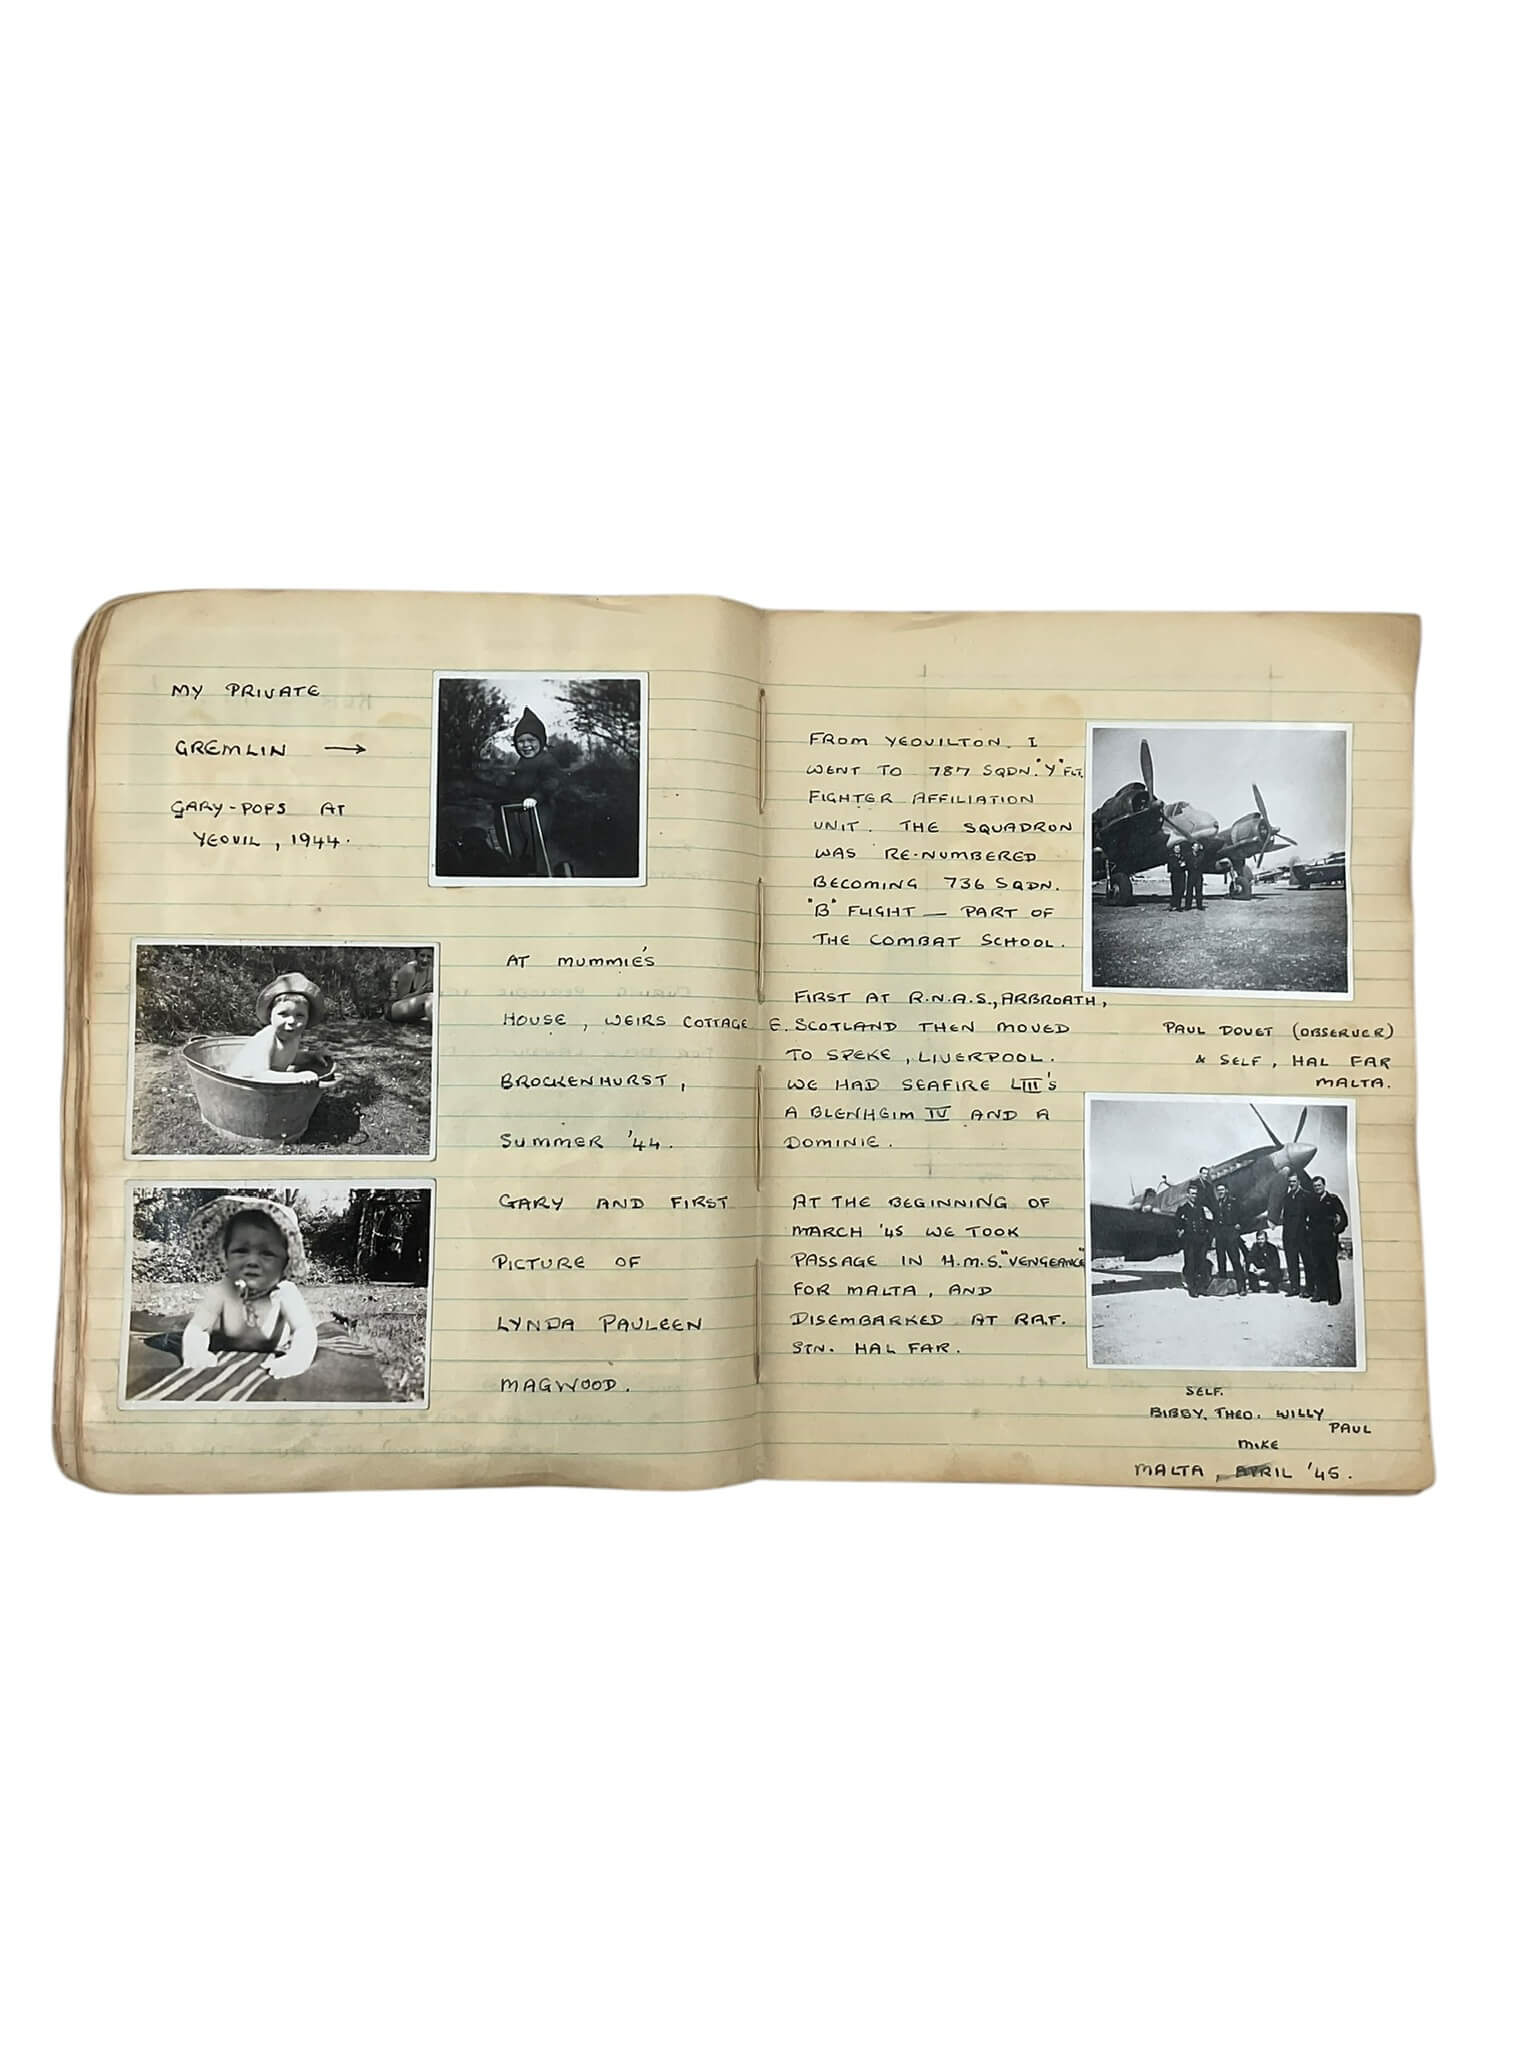 MY PRIVATE
GREMLIN →
GARY-POPS AT
YEOVIL, 1944.
AT MUMMIE'S
HOUSE, WEIRS COTTAGE
BROCKENHURST,
SUMMER '44.
GARY AND FIRST
PICTURE OF
LYNDA PAULEEN
MAGWOOD.
FROM YEOVILTON. I
WENT TO 787 SQDN. "Y" FLT.
FIGHTER AFFILIATION
UNIT. THE SQUADRON
WAS RE-NUMBERED
BECOMING 736 SQDN.
"B" FLIGHT — PART OF
THE COMBAT SCHOOL.
FIRST AT R.N.A.S., ARBROATH,
E. SCOTLAND THEN MOVED
TO SPEKE, LIVERPOOL.
WE HAD SEAFIRE LIII'S
A BLENHEIM IV AND A
DOMINIE.
AT THE BEGINNING OF
MARCH '45 WE TOOK
PASSAGE IN H.M.S. "VENGEANCE"
FOR MALTA, AND
DISEMBARKED AT R.A.F.
STN. HAL FAR.
PAUL DOUET (OBSERVER)
& SELF, HAL FAR
MALTA.
SELF.
BIBBY, THEO. WILLY
PAUL
MIKE
MALTA, APRIL '45.